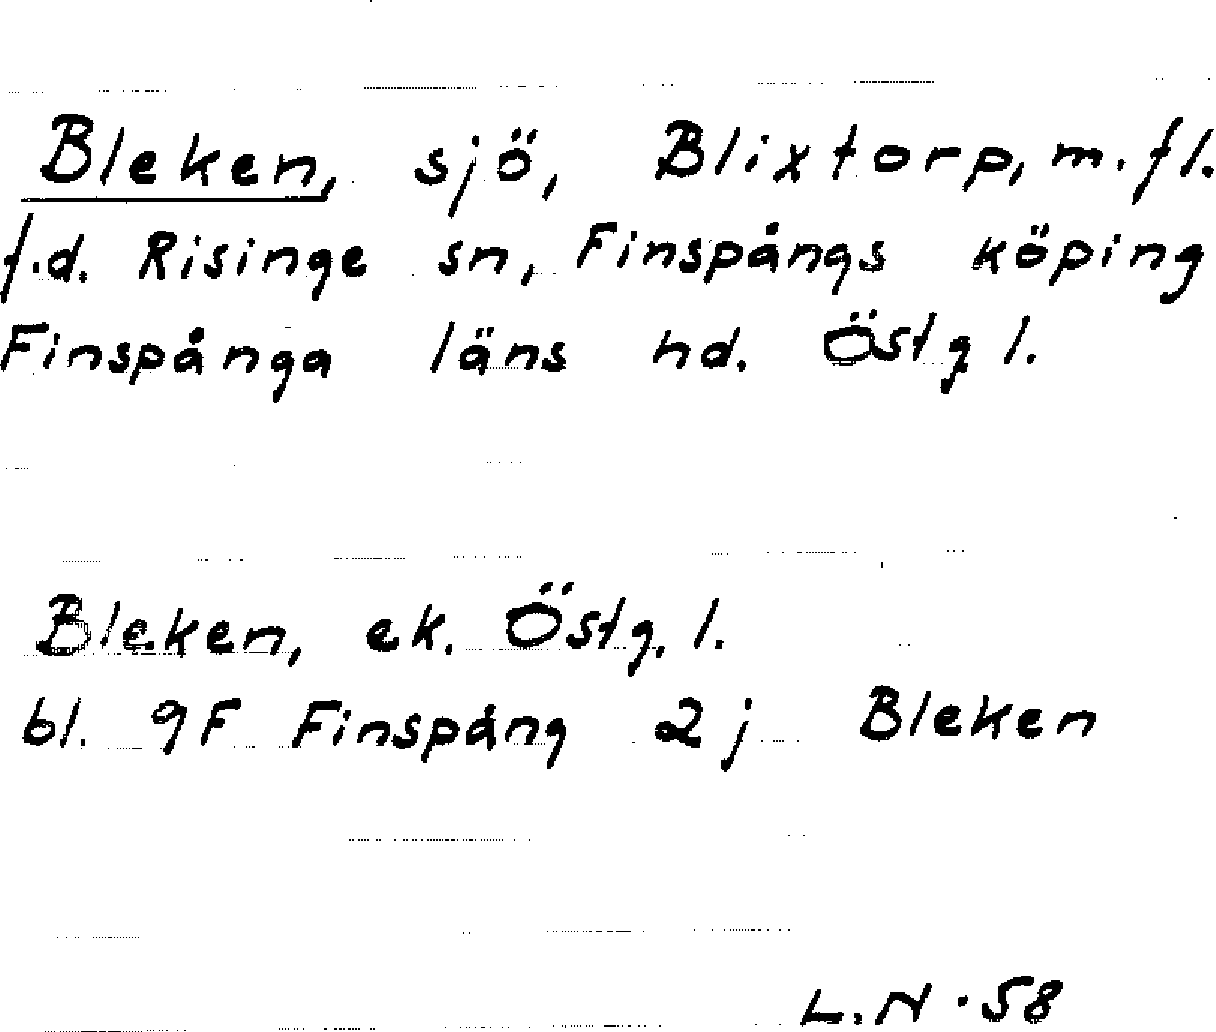 Bleken, sjö, Blixtorp, m.fl.
f.d. Risinge sn, Finspångs köping
Finspånga läns hd. Östg l.
Bleken, ek. Östg. l.
bl. 9F Finspång 2j Bleken
L.N. 58